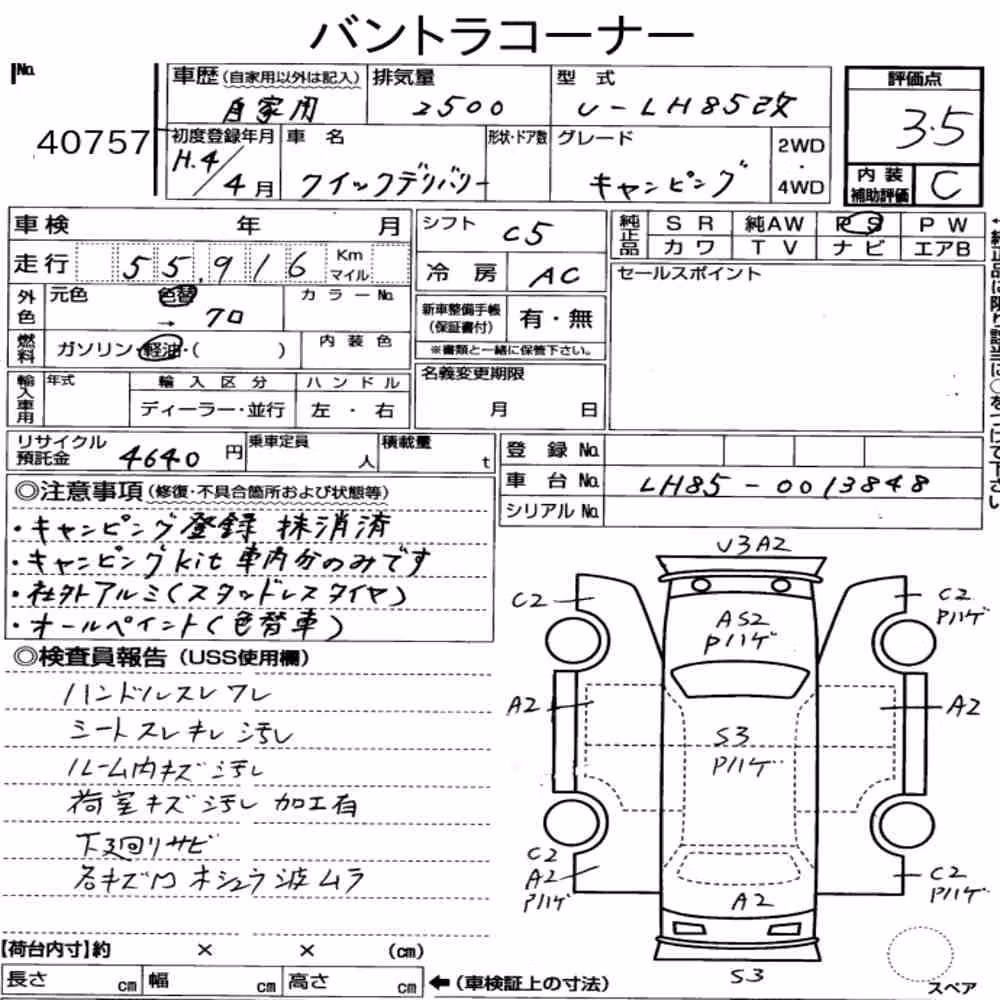 バントラコーナー
No.
40757
車歴(自家用以外は記入)
自家用
排気量
2500
型 式
U-LH85改
評価点
3.5
初度登録年月
H.4/4月
車 名
クイックデリバリー
形状・ドア数
グレード
キャンピング
2WD
・
4WD
内装
補助評価
C
車検 年 月
シフト
C5
純正品
SR 純AW PS PW
カワ TV ナビ エアB
走行 55,916 Km
マイル
冷房
AC
セールスポイント
外色
元色 色替 → クロ
カラーNo.
新車整備手帳
(保証書付)
有・無
※書類と一緒に保管下さい。
燃料
ガソリン・軽油・( )
内装色
輸入車用
年式
輸入区分
ハンドル
ディーラー・並行
左・右
名義変更期限
月 日
リサイクル
預託金
4640円
乗車定員
人
積載量
t
登録 No.
車台 No.
LH85-0013848
シリアル No.
◎注意事項(修復・不具合箇所および状態等)
・キャンピング登録 抹消済
・キャンピングkit 車内分のみです
・社外アルミ(スタッドレスタイヤ)
・オールペイント(色替車)
◎検査員報告(USS使用欄)
ハンドルスレ ワレ
シートスレ キレ 汚レ
ルーム内キズ 汚レ
荷室キズ 汚レ 加工有
下廻りサビ
各キズ凹
波 ムラ
U3A2
C2
C2
Pハゲ
AS2
Pハゲ
A2
A2
S3
Pハゲ
C2
A2
Pハゲ
C2
Pハゲ
A2
S3
スペア
【荷台内寸】約 × × (cm)
長さ cm
幅 cm
高さ cm
←(車検証上の寸法)